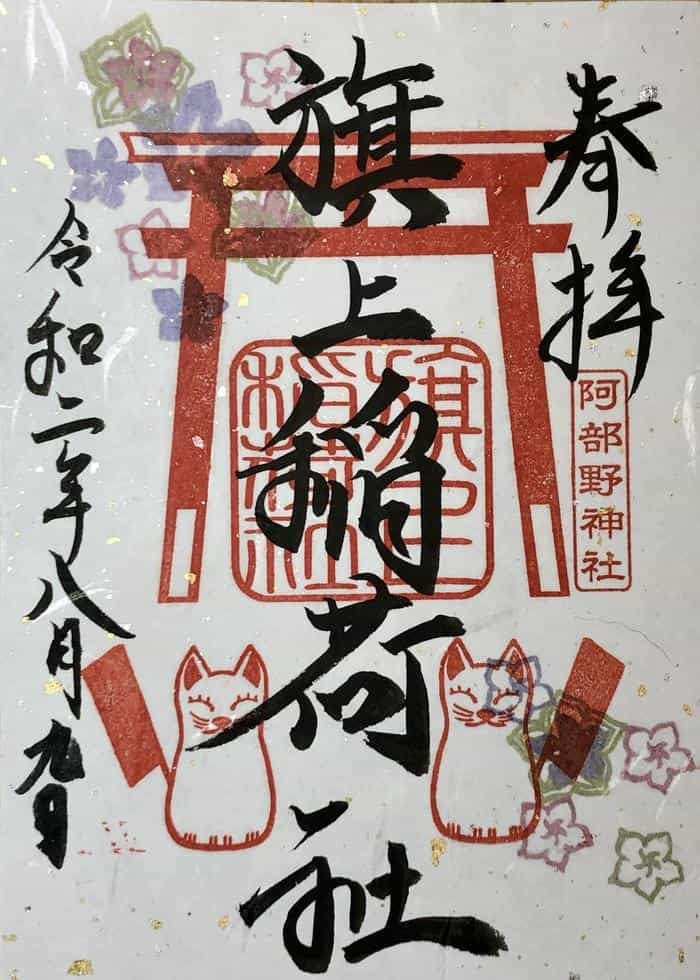 奉拝
阿部野神社
旗上稲荷社
旗上
稲荷社
令和二年八月九日